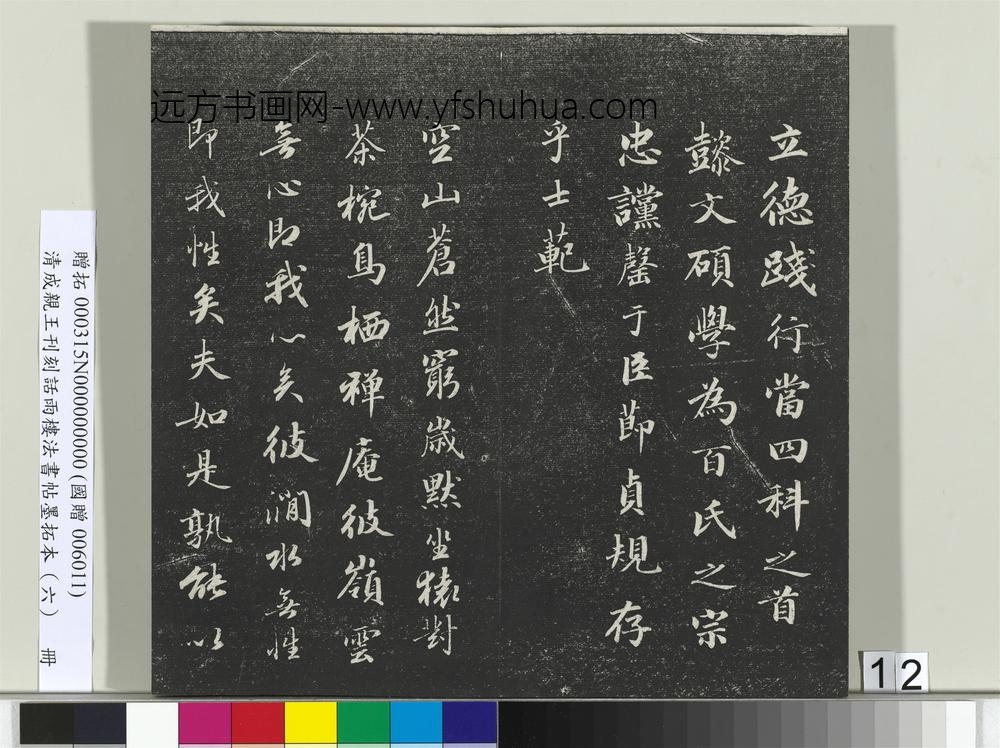 远方书画网-www.yfshuhua.com
立德踐行當四科之首
懿文碩學為百氏之宗
忠讜罄于臣節貞規存
乎士範
空山蒼然窮歲默坐猿對
茶椀鳥栖禪庵彼嶺雲
無心即我心矣彼澗水無性
即我性矣夫如是孰能以
贈拓 000315N000000000 (國贈 006011)
清成親王刊刻話雨樓法書帖墨拓本（六） 冊
12